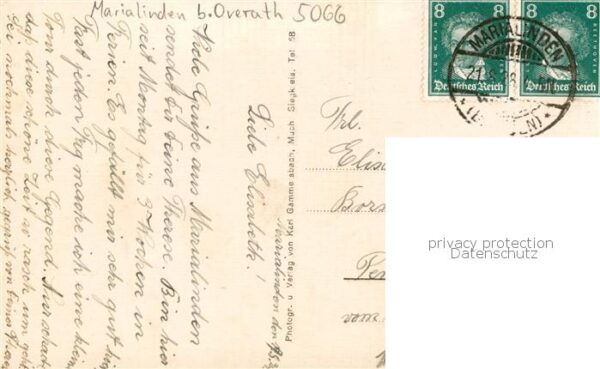 Marialinden b. Overath 5066
8
8
LUDW. VAN
BEETHOVEN
Deutsches Reich
Deutsches Reich
MARIALINDEN
Marialinden den
Liebe Elisabeth!
Viele Grüße aus Marialinden
sendet dir deine Therese. Bin hier
seit Montag für 3 Wochen in
Ferien. Es gefällt mir sehr gut hier
Fast jeden Tag mache ich eine kleine
Tour durch diese Gegend. Nur schade
daß diese schöne Zeit so rasch um geht
Sei nochmals herzlich gegrüßt von deiner
Photogr. u Verlag von Karl Gammersbach, Much Siegkreis, Tel. 58
Frl.
privacy protection
Datenschutz